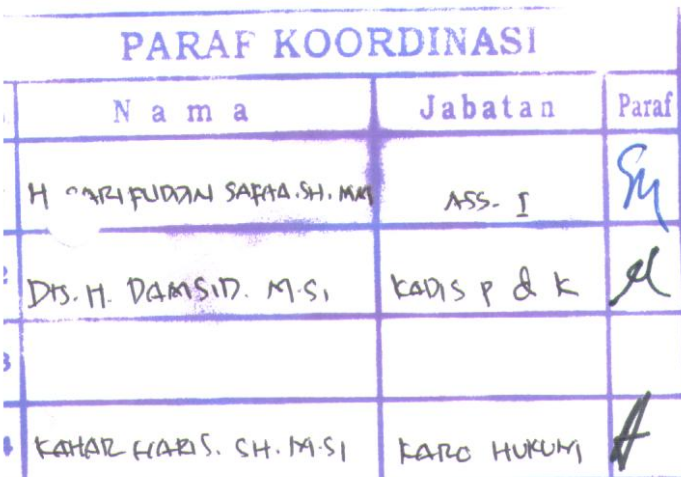 PARAF KOORDINASI
Nama Jabatan Paraf
H SARIFUDDIN SAFAA.SH.MM ASS. I
2 DRS. H. DAMSID. M.Si KADIS P & K
3
4 KAHAR HARIS. SH. M.Si KARO HUKUM